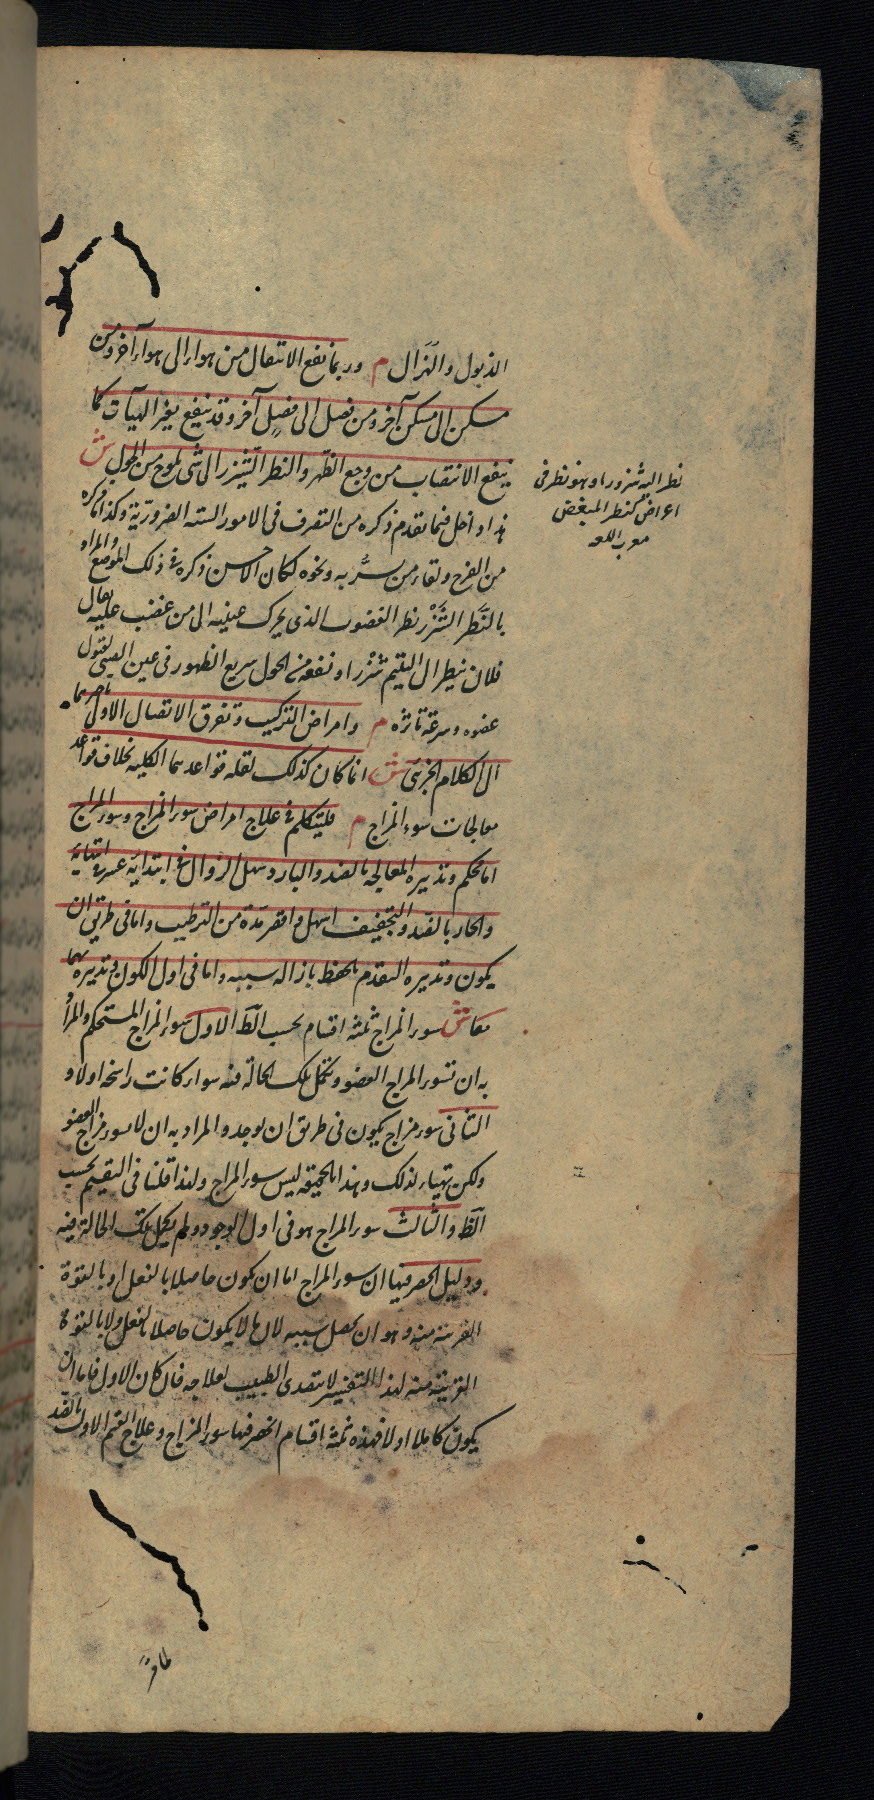 الذبول والهزال م وربما نفع الانتقال من هواء الى هواء آخر ومن
مسكن الى مسكن آخر ومن فصل الى فصل آخر وقد ينفع تغير الهيآت كما
ينفع الانتصاب من وجع الظهر والنظر الشزر الى شى يلوح من الحول ش
هذا داخل فيما تقدم ذكره من التصرف فى الامور السته الضرورية وكذا ما ذكره
من الفرح ولقاء من يسر به ونحوه لكان الاحسن ذكره فى ذلك الموضع والمراد
بالنظر الشزر نظر الغضوب الذى يحرك عينيه الى من غضب عليه يقال
فلان ينظر الى اليتيم شزرا ونفعه من الحول سريع الظهور فى عين الصبى لقبول
عضوه وسرعة تاثره م وامراض التركيب وتفرق الاتصال الاولى تاخيرهما
الى الكلام الجزئى ش انما كان كذلك لقلة قواعدهما الكليه بخلاف قواعد
معالجات سوء المزاج م فلنتكلم فى علاج امراض سوء المزاج وسوء المزاج
اما محكم وتدبيره المعالجه بالضد والبارد سهل الزوال فى ابتدائه عسر فى انتهائه
والحار بالضد والتجفيف اسهل واقصر مدة من الترطيب واما فى طريق ان
يكون وتدبيره التقدم بالحفظ بازالة سببه واما فى اول الكون وتدبيره بهما
معا ش سوء المزاج ثلثة اقسام بحسب اللفظ الاول سوء المزاج المستحكم والمراد
به ان تسوء المزاج العضو وتكمل تلك الحالة فيه سواء كانت راسخة اولا و
الثانى سوء مزاج يكون فى طريق ان يوجد والمراد به ان لا يسوء مزاج العضو
ولكن يتهياء لذلك وهذا بالحقيقه ليس سوء المزاج ولهذا قلنا فى التقسيم بحسب
اللفظ والثالث سوء المزاج هو فى اول الوجود ولم يكمل تلك الحالة فيه
ودليل الحصر فيها ان سوء المزاج اما ان يكون حاصلا بالفعل او بالقوة
القريبه منه وهو ان يحصل سببه لان ما لا يكون حاصلا بالفعل ولا بالقوة
القريبة منه لهذا التفسير لا يتصدى الطبيب لعلاجه فان كان الاول فاما ان
يكون كاملا اولا فهذه ثلثة اقسام انحصر فيها سوء المزاج وعلاج القسم الاول بالضد
نظر اليه شزرا وهو نظر فى
اعراض كنظر المبغض